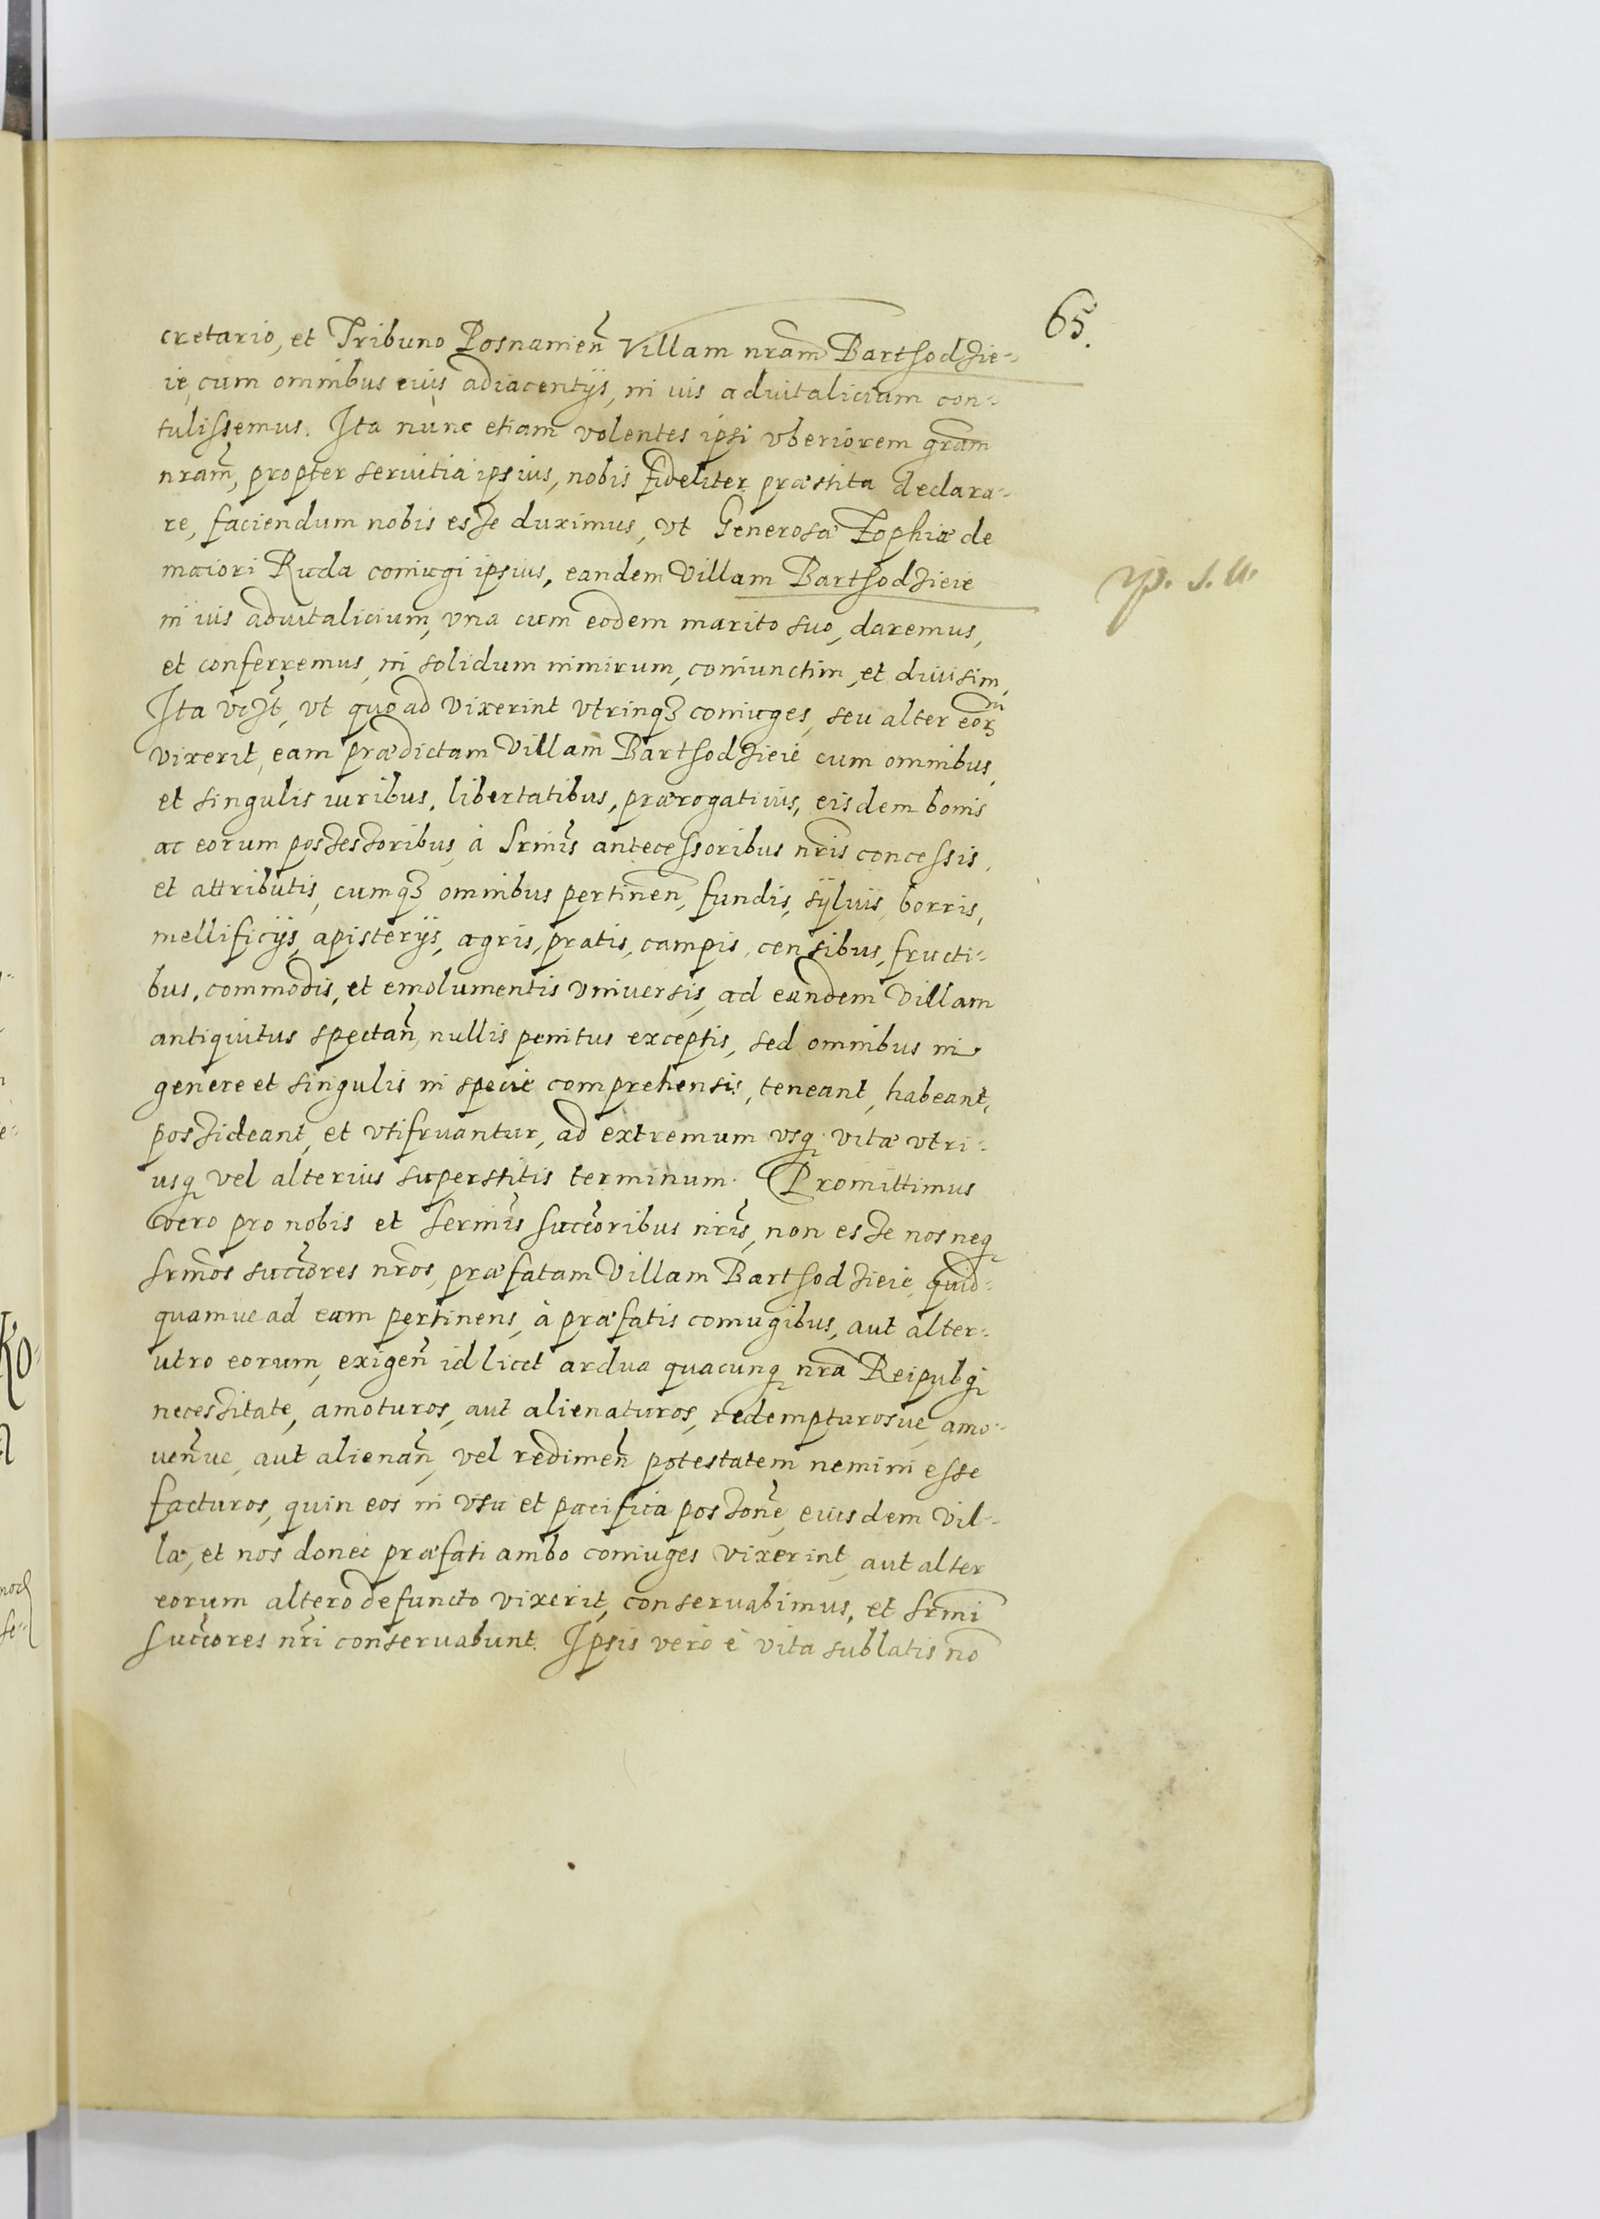 65.
cretario, et Tribuno Posnamień Villam nram Bartſodzie-
ie, cum omnibus euis adiacentijs, in ius aduitalicium con-
tuliſsemus. Ita nunc etiam volentes ipsi vberiorem gram
nram, propter seruitia ipsius, nobis fideliter præstita declara-
re, faciendum nobis esse duximus, vt Generosæ Zophiæ de
maiori Ruda coniugi ipsius, eandem Villam Bartſodzieie
in ius aduitalicium, vna cum eodem marito suo, daremus,
et conferremus, in solidum nimirum, coniunctim, et diuisim,
Ita vczt, vt quoad vixerint vtrinqȝ coniuges, seu alter eorm
vixerit, eam prædictam Villam Bartſodzieie cum omnibus,
et singulis iuribus, libertatibus, prærogatiuis, eisdem bonis
ac eorum possessoribus, à Srmis antecesſoribus nris conceſsis,
et attributis, cumqȝ omnibus pertinen, fundis, sÿluis, borris,
mellificijs, apisterijs, agris, pratis, campis, censibus, fructi-
bus, commodis, et emolumentis vniuersis, ad eandem Villam
antiquitus spectan, nullis penitus exceptis, sed omnibus in
genere et singulis in specie comprehensis, teneant, habeant,
possideant, et vtifruantur, ad extremum vsq vitæ vtri-
usq vel alterius superstitis terminum. Promittimus
vero pro nobis et Sermis Succoribus nris, non esse nos neq
Srmos succores nros, præfatam Villam Bartſodzieie, quid-
quamue ad eam pertinens, à præfatis coniugibus, aut alter-
utro eorum, exigen id licet ardua quacunq nra Reipubq
necessitate, amoturos, aut alienaturos, redempturosue, amo-
uenue, aut alienan, vel redimen potestatem nemini eſse
facturos, quin eos in vsu et pacifica possone, euisdem Vil-
læ, et nos donec præfati ambo coniuges vixerint, aut alter
eorum altero defuncto vixerit, conseruabimus, et Srmi
Succores nri conseruabunt. Ipsis vero è vita sublatis no